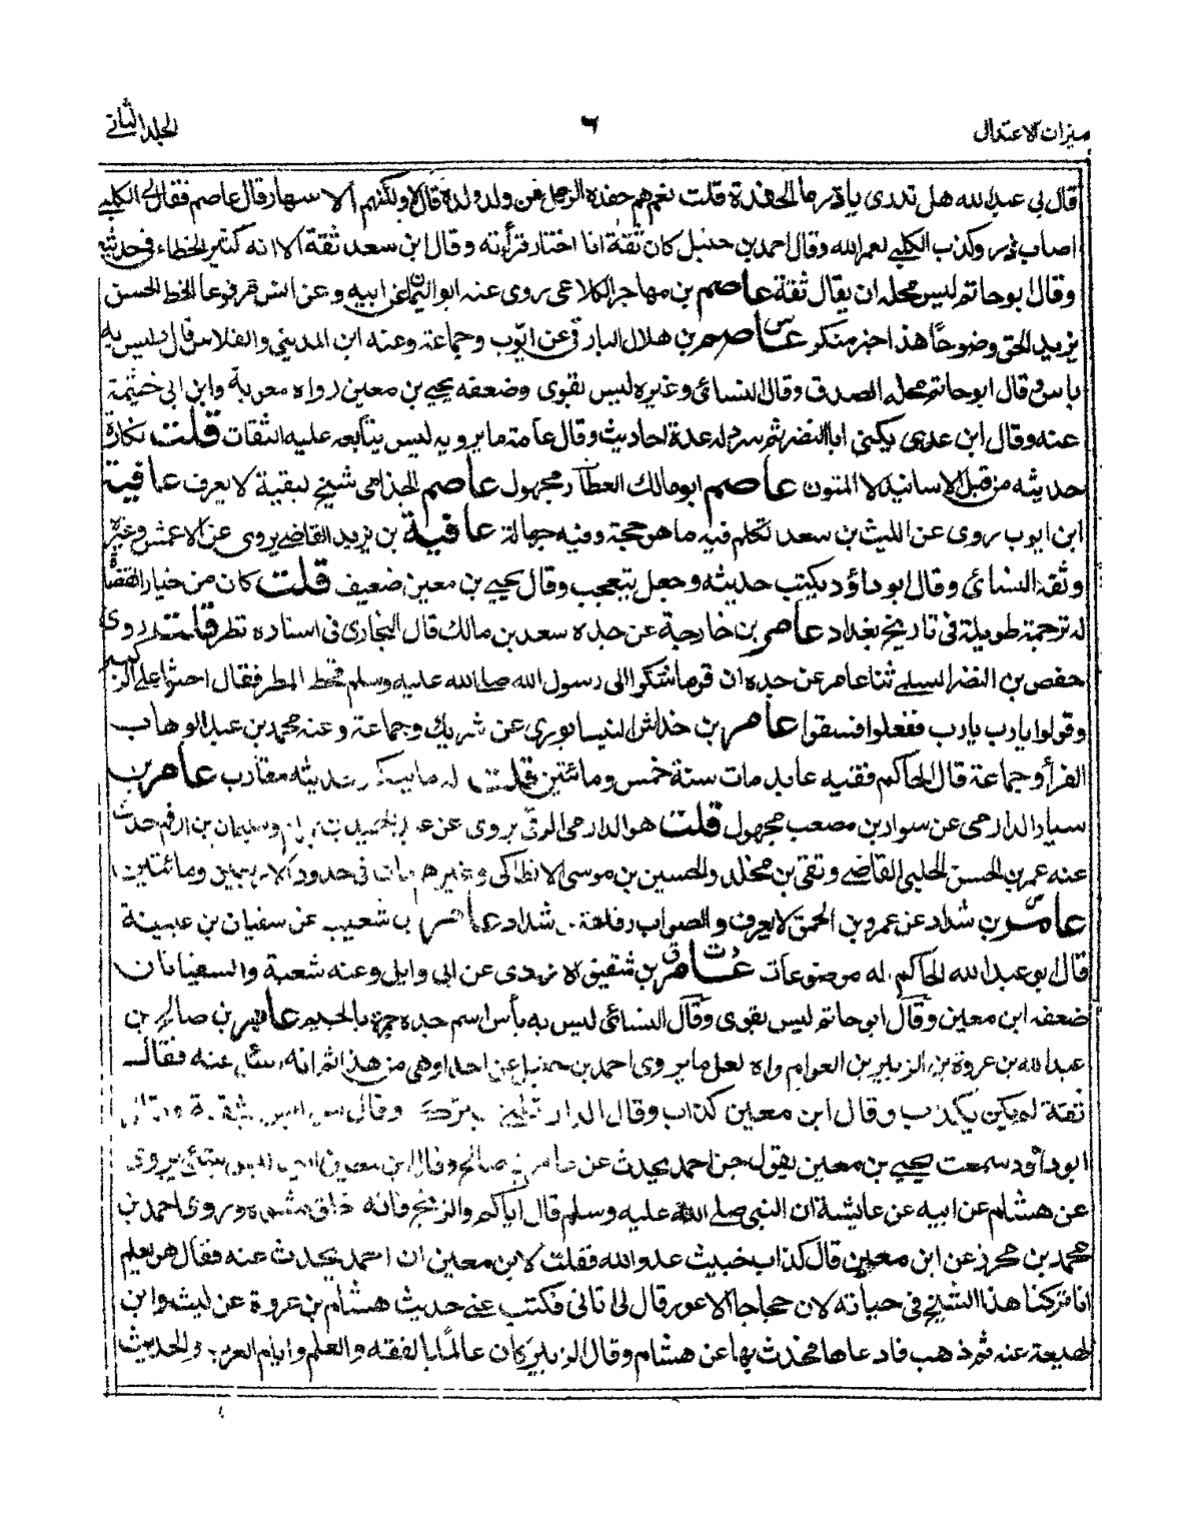 ميزان الاعتدال
٦
المجلد الثاني
قال لي عبد الله هل تدري يا زر ما الحفدة قلت نعم هم حفدة الرجل من ولد ولده قال لا ولكنهم الاصهار قال عاصم فقال لي الكلبي
اصاب زر وكذب الكلبي لعمر الله وقال احمد بن حنبل كان ثقة انا اختار قرأته وقال ابن سعد ثقة الا انه كثير الخطاء في حديثه
وقال ابو حاتم ليس محله ان يقال ثقة عاصم بن مهاجر الكلاعي روى عنه ابو اليمان عن ابيه وعن انس مرفوعا الخط الحسن
يزيد الحق وضوحاً هذا خبر منكر عاصم بن هلال البارقي عن ايوب وجماعة وعنه ابن المديني والفلاس قال ليس به
باس وقال ابو حاتم محله الصدق وقال النسائي وغيره ليس بقوى وضعفه يحيى بن معين رواه معوية وابن ابي خثيمة
عنه وقال ابن عدى يكنى ابا النضر ثم سرد له عدة احاديث وقال عامة ما يرويه ليس يتابعه عليه الثقات قلت نكارة
حديثه من قبل الاسانيد لا المتون عاصم ابو مالك العطار مجهول عاصم الجذامى شيخ لبقية لا يعرف عافية
ابن ايوب روى عن الليث بن سعد تكلم فيه ما هو حجة وفيه جهالة عافية بن يزيد القاضي يروى عن الاعمش وغيره
وثقه النسائي وقال ابو داؤد يكتب حديثه وجعل يتعجب وقال يحيى بن معين ضعيف قلت كان من خيار القضاة
له ترجمة طويلة في تاريخ بغداد عامر بن خارجة عن جده سعد بن مالك قال البخارى في اسناده نظر قلت روى
حفص بن النضر السلمي ثنا عامر عن جده ان قوما شكوا الى رسول الله صلى الله عليه وسلم قحط المطر فقال اجثوا على الركب
وقولوا يا رب يا رب ففعلوا فسقوا عامر بن خداش النيسابوري عن شريك وجماعة وعنه محمد بن عبد الوهاب
الفرأ وجماعة قال الحاكم فقيه عابد مات سنة خمس ومائتين قلت له ما ينكر حديثه مقارب عامر بن
سيار الدارمى عن سوار بن مصعب مجهول قلت هو الدارمى الرقي يروى عن عبد الحميد بن بهرام وسليمان بن ارقم حدث
عنه عمر بن الحسن الحلبي القاضي وتقى بن مخلد والحسين بن موسى الانطاكى وغيرهم مات في حدود الاربعين ومائتين
عامر بن شداد عن عمرو بن الحمق لا يعرف والصواب رفاعة بن شداد عامر بن شعيب عن سفيان بن عيينة
قال ابو عبد الله الحاكم له موضوعات عامر بن شقيق الازدى عن ابي وايل وعنه شعبة والسفيانان
ضعفه ابن معين وقال ابو حاتم ليس بقوى وقال النسائي ليس به بأس اسم جده جمرة بالجيم عامر بن صالح بن
عبد الله بن عروة بن الزبير بن العوام واه لعل ما يروى احمد بن حنبل عن احد اوهى من هذا ثم انه سئل عنه فقال
ثقة لم يكن يكذب وقال ابن معين كذاب وقال الدارقطني يترك وقال النسائي ليس بثقة وقال
ابو داؤد سمعت يحيى بن معين يقول جن احمد يحدث عن عامر بن صالح وقال ابن معين ايضا ليس بشئ يروى
عن هشام عن ابيه عن عايشة ان النبي صلى الله عليه وسلم قال اياكم والزنج فانه خلق مشوه وروى احمد بن
محمد بن محرز عن ابن معين قال كذاب خبيث عدو الله فقلت لابن معين ان احمد يحدث عنه فقال هو يعلم
انا تركنا هذا الشيخ في حياته لان حجاجا الاعور قال لي اتانى فكتب عنى حديث هشام بن عروة عن ليث وابن
لهيعة عنه ثم ذهب فادعاها فحدث بها عن هشام وقال الزبير كان عالما بالفقه والعلم وايام العرب والحديث